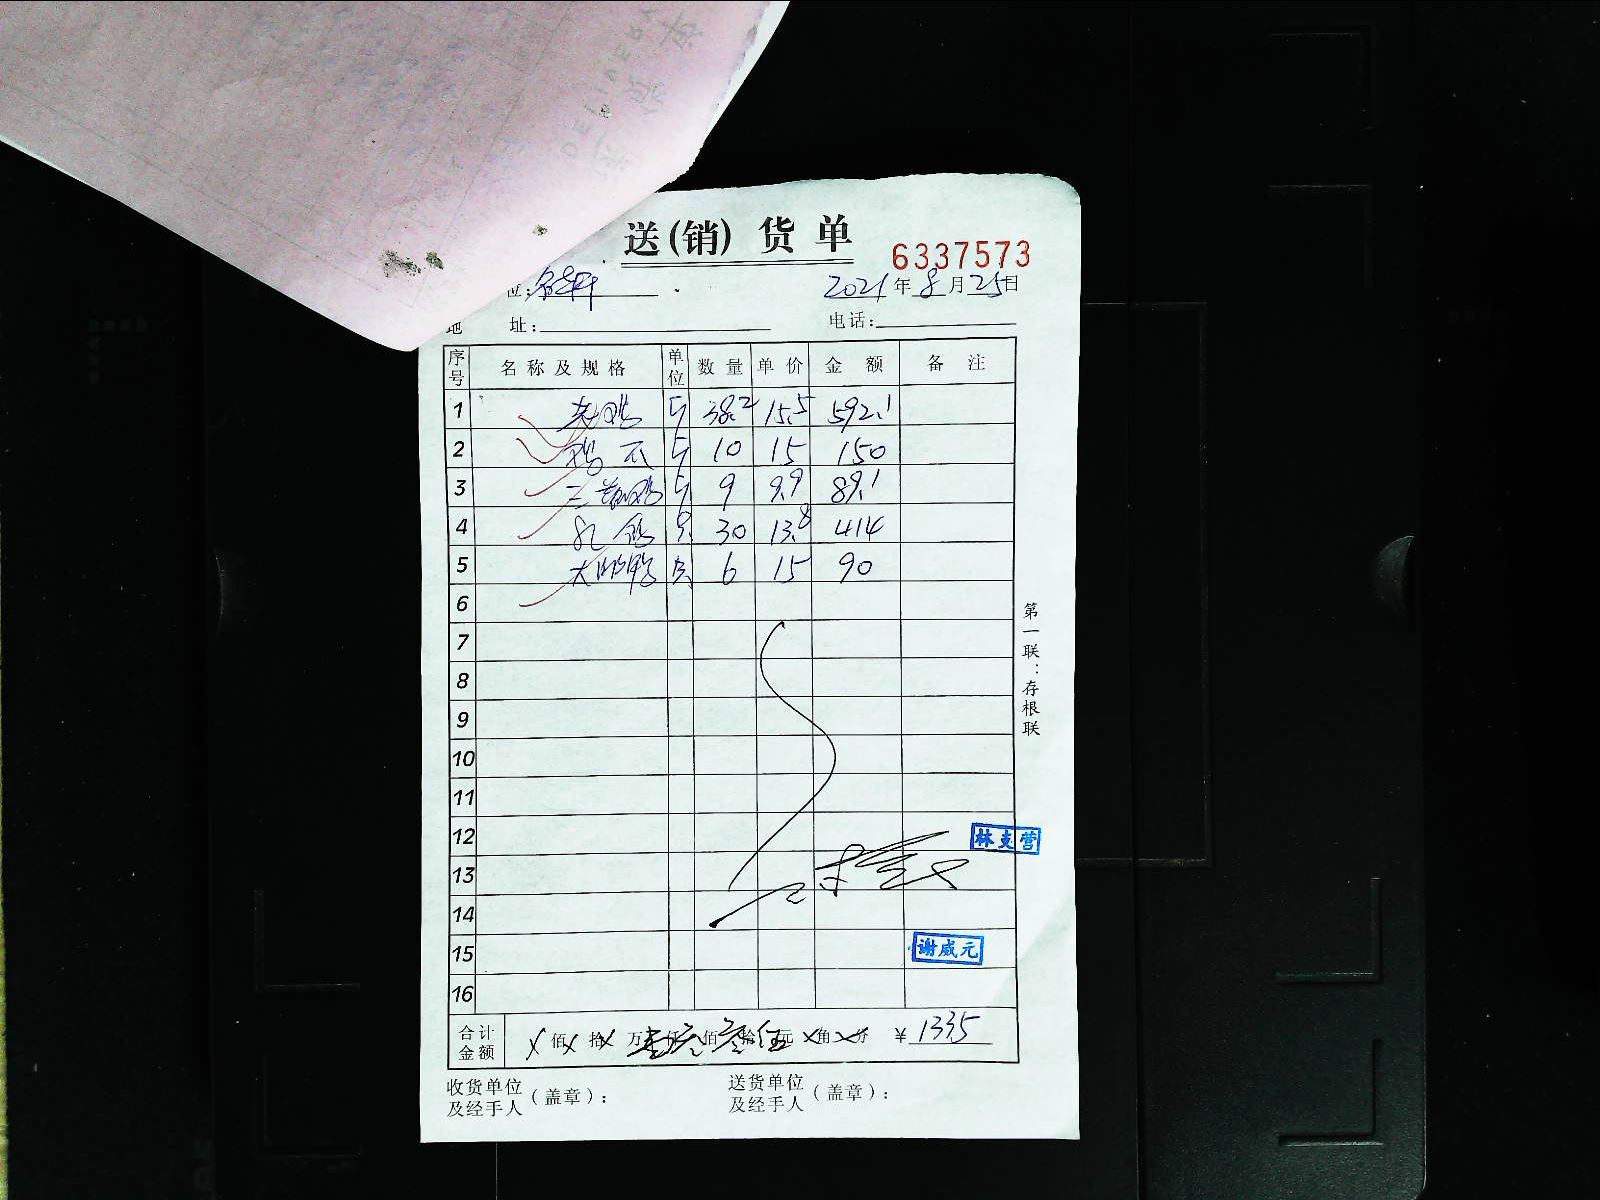 送(销)货单
6337573
位:
2021年8月25日
地 址: 电话:
序号 名称及规格 单位 数量 单价 金额 备注
1 老鸡 斤 38.2 15.5 592.1
2 斤 10 15 150
3 三黄鸡 斤 9 9.9 89.1
4 乳鸽 只 30 13.8 414
5 大 只 6 15 90
6
7
8
9
10
11
12
13
14
15
16
林支营
谢威元
合计金额 X佰X拾X万壹仟叁佰叁拾伍元X角X分 ¥1335
收货单位及经手人(盖章): 送货单位及经手人(盖章):
第一联:存根联